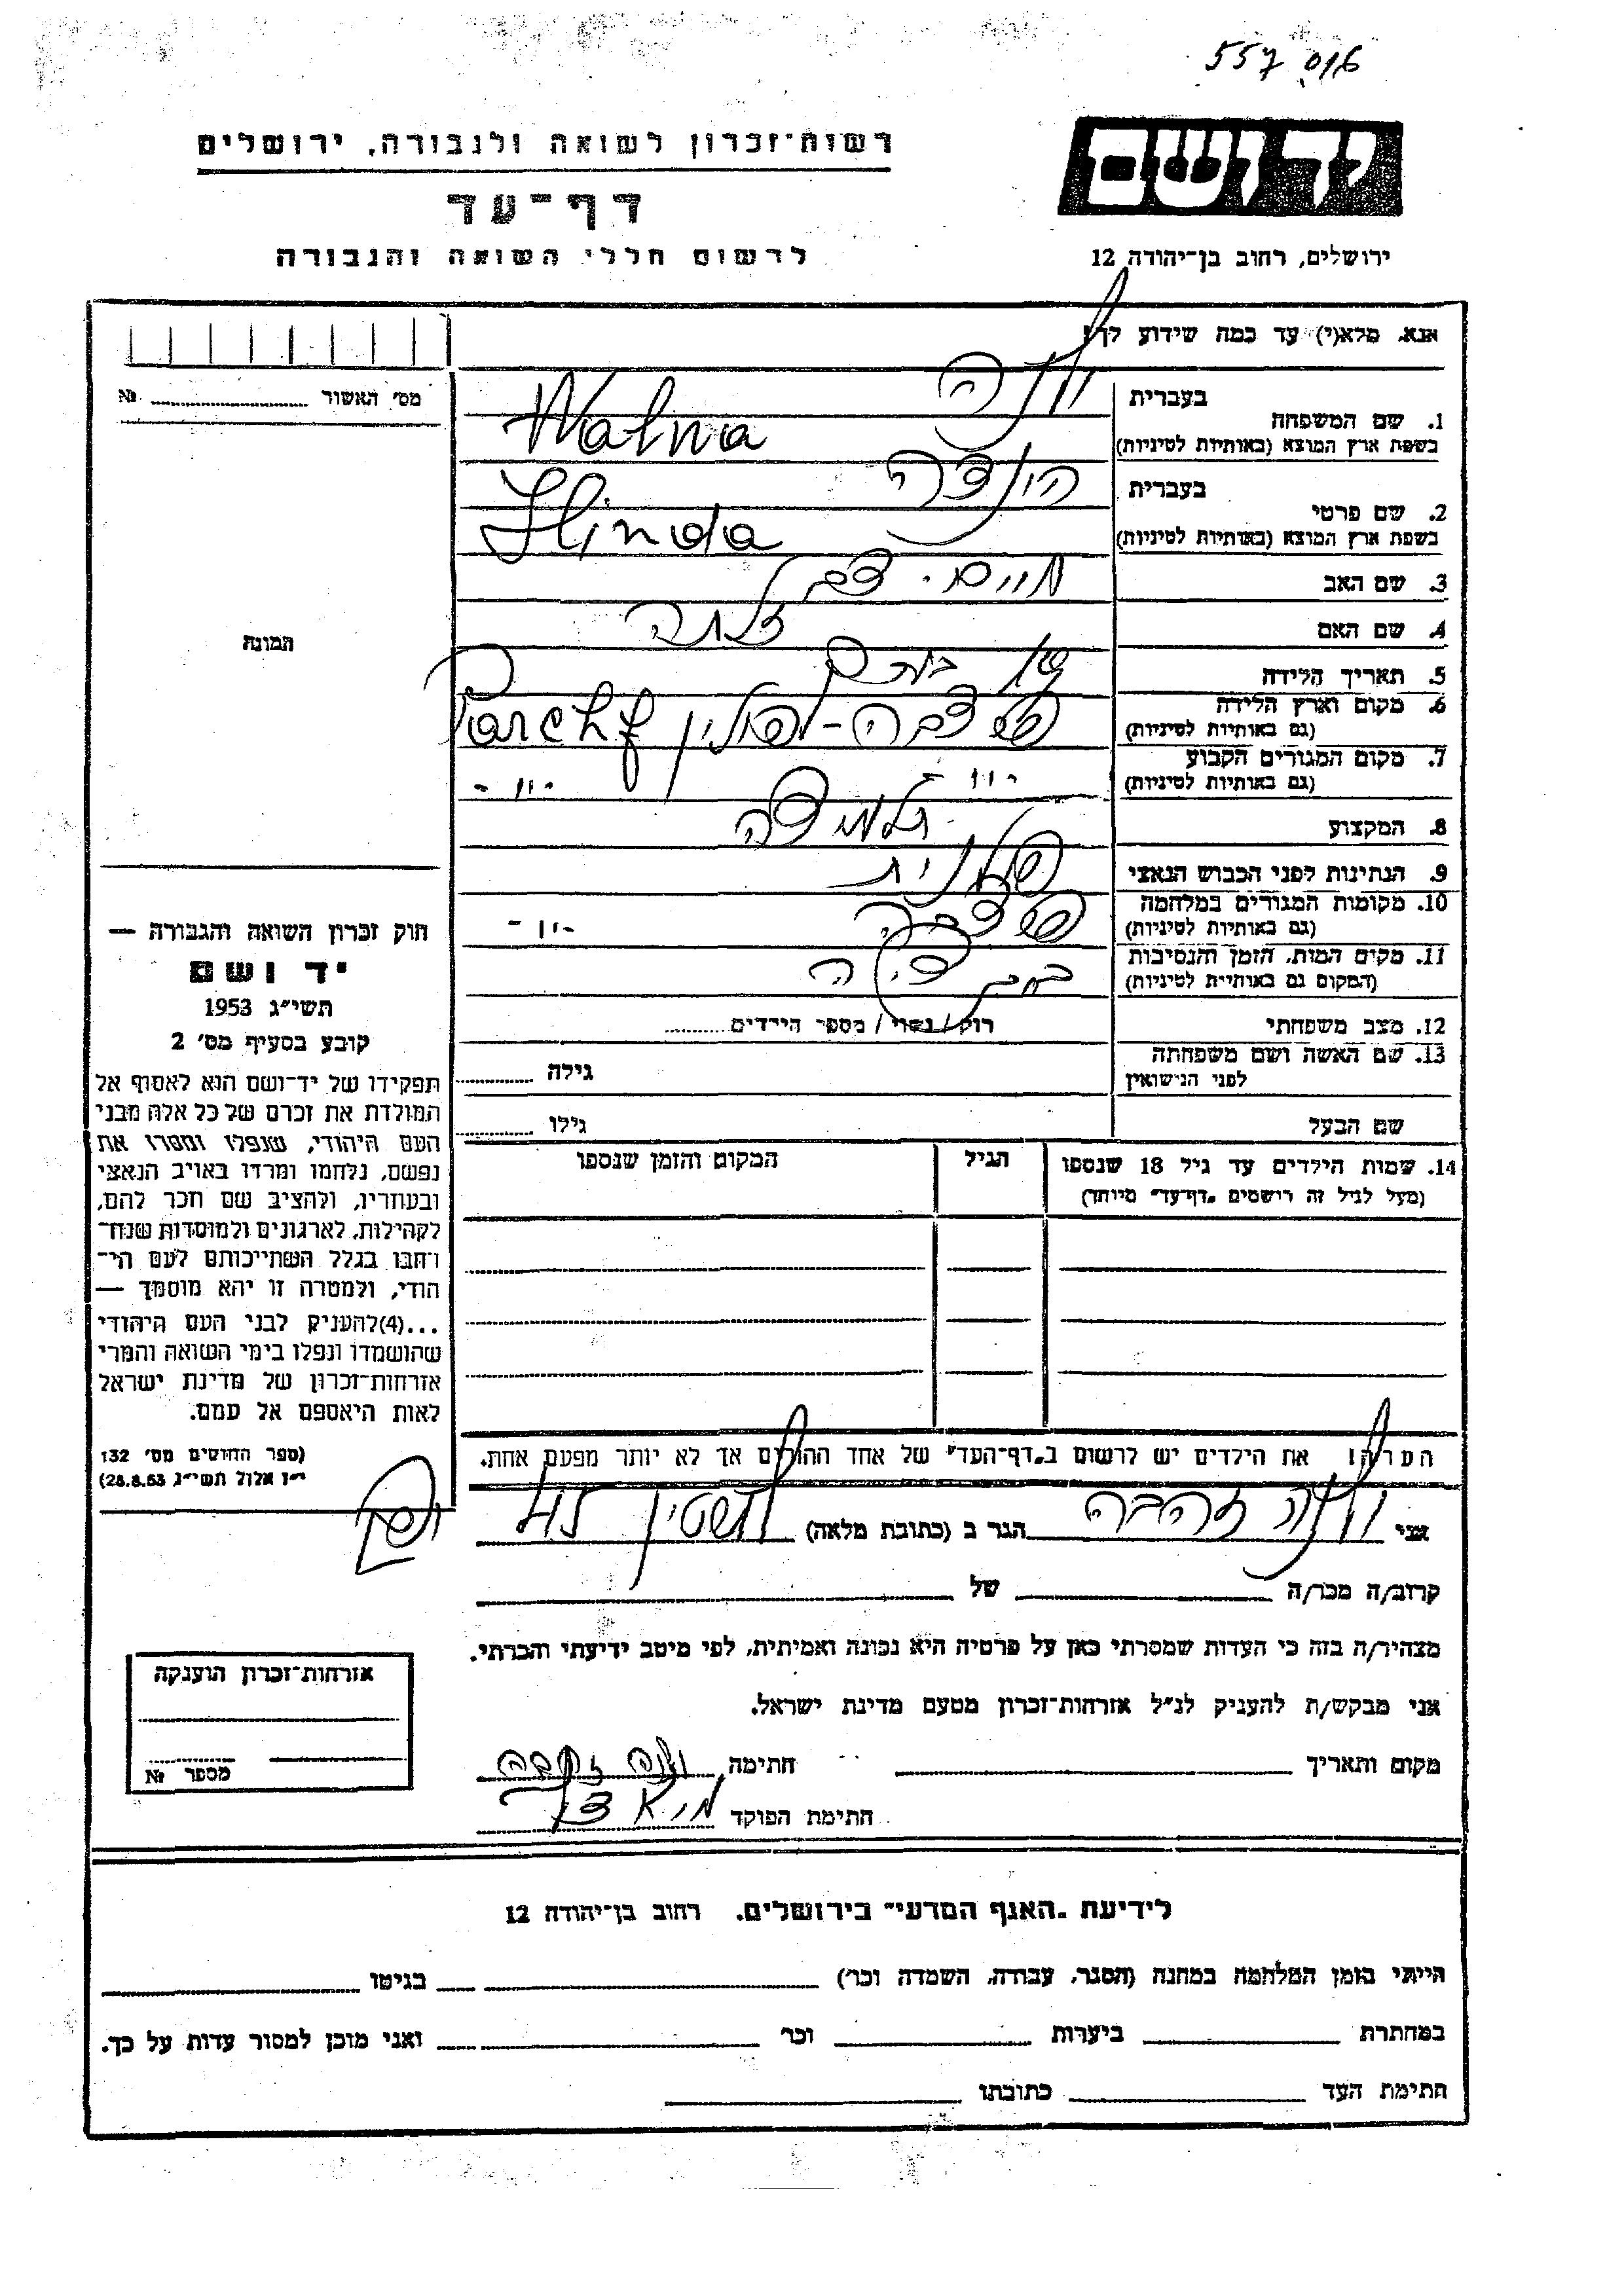 557 016
יד ושם
רשות־זכרון לשואה ולגבורה, ירושלים
דף־עד
לרשום חללי השואה והגבורה
ירושלים, רחוב בן־יהודה 12
אנא, מלא(י) עד כמה שידוע לך!
מס' האשור № 
1. שם המשפחה
בעברית
בשפת ארץ המוצא (באותיות לטיניות) Walna
2. שם פרטי
בעברית הינדה
בשפת ארץ המוצא (באותיות לטיניות) Hinda
3. שם האב חיים
4. שם האם זלתה
תמונה
5. תאריך הלידה
6. מקום וארץ הלידה
(גם באותיות לטיניות) פולין
7. מקום המגורים הקבוע
(גם באותיות לטיניות) -"- -"-
8. המקצוע תלמידה
9. הנתינות לפני הכבוש הנאצי פולנית
10. מקומות המגורים במלחמה
(גם באותיות לטיניות) -"-
11. מקום המות, הזמן והנסיבות
(המקום גם באותיות לטיניות)
12. מצב משפחתי רוק / נשוי / מספר הילדים
13. שם האשה ושם משפחתה
לפני הנישואין גילה
שם הבעל גילו
14. שמות הילדים עד גיל 18 שנספו הגיל המקום והזמן שנספו
(מעל לגיל זה רושמים "דף־עד" מיוחד)
חוק זכרון השואה והגבורה —
יד ושם
תשי"ג 1953
קובע בסעיף מס' 2
תפקידו של יד־ושם הוא לאסוף אל
המולדת את זכרם של כל אלה מבני
העם היהודי, שנפלו ומסרו את
נפשם, נלחמו ומרדו באויב הנאצי
ובעוזריו, ולהציב שם וזכר להם,
לקהילות, לארגונים ולמוסדות שנח־
רבו בגלל השתייכותם לעם הי־
הודי, ולמטרה זו יהא מוסמך —
...(4) להעניק לבני העם היהודי
שהושמדו ונפלו בימי השואה והמרי
אזרחות־זכרון של מדינת ישראל
לאות היאספם אל עמם.
(ספר החוקים מס' 132
י"ז אלול תשי"ג 28.8.53)
הערה! את הילדים יש לרשום ב"דף־העד" של אחד ההורים אך לא יותר מפעם אחת.
אני זהבה הגר ב (כתובת מלאה)
קרוב/ה מכר/ה של
מצהיר/ה בזה כי העדות שמסרתי כאן על פרטיה היא נכונה ואמיתית, לפי מיטב ידיעתי והכרתי.
אני מבקש/ת להעניק לנ"ל אזרחות־זכרון מטעם מדינת ישראל.
מקום ותאריך חתימה זהבה
חתימת הפוקד
אזרחות־זכרון הוענקה
מספר №
לידיעת "האגף המדעי" בירושלים, רחוב בן־יהודה 12
הייתי בזמן המלחמה במחנה (הסגר, עבודה, השמדה וכו') בגיטו
במחתרת ביערות וכו' ואני מוכן למסור עדות על כך.
חתימת העד כתובתו